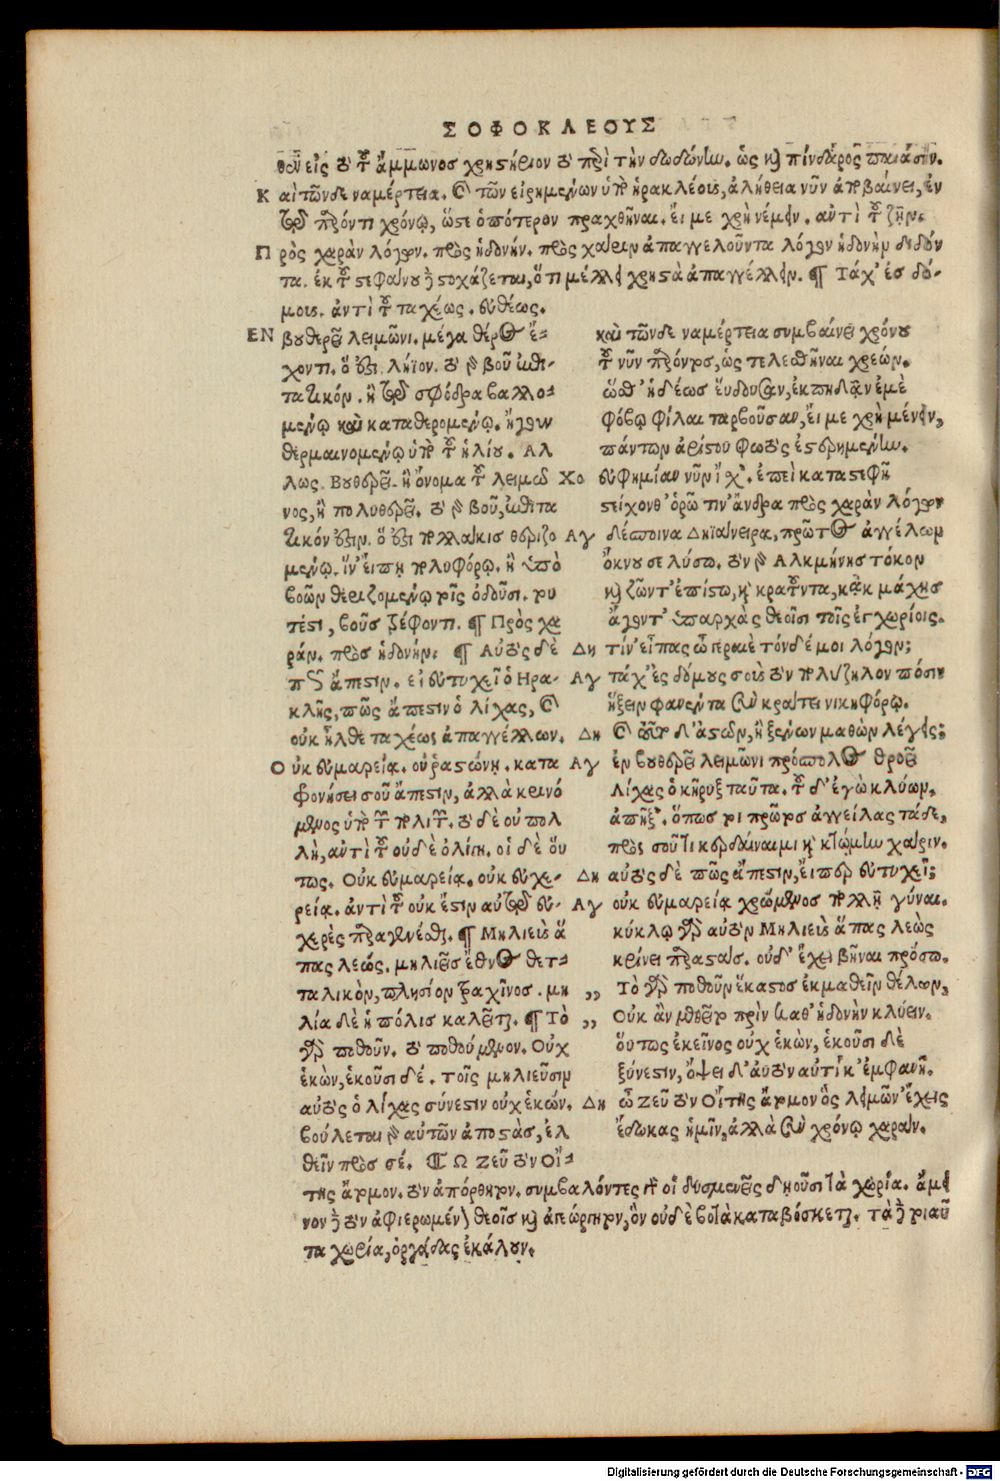 ΣΟΦΟΚΛΕΟΥΣ
θεῖν εἰς τὸ τοῦ ἄμμωνος χρηστήριον τὸ περὶ τὴν δωδώνην. ὡς καὶ πίνδαρος παιάσιν.
Καὶ τῶνδε ναμέρτεια. καὶ τῶν εἰρημένων ὑπὸ ἡρακλέους, ἀλήθεια νῦν ἀποβαίνει, ἐν
τῷ παρόντι χρόνῳ, ὥστε ὁπότερον πραχθῆναι. εἴ με χρὴ νέμειν. ἀντὶ τοῦ ζῆν.
Πρὸς χαρὰν λόγων. πρὸς ἡδονήν. πρὸς χαίρειν ἀπαγγελοῦντα λόγων ἡδονὴν διδόν
τα. ἐκ τοῦ στεφάνου δὲ στοχάζεται, ὅτι μέλλει χρηστὰ ἀπαγγέλλειν. ¶ Τάχ' ἐσ δό-
μους. ἀντὶ τοῦ ταχέως. εὐθέως.
ΕΝ βουθερεῖ λειμῶνι. μέγα θέρος ἔ-
χοντι. ὅ ἐστι λήϊον. τὸ γὰρ βοῦ ἐπιτατικόν. ἢ τῷ σφόδρα βαλλο-
μένῳ καὶ καταθερομένῳ. ἤγουν
θερμαινομένῳ ὑπὸ τοῦ ἡλίου. Αλ
λως. Βουθερεῖ. ἢ ὄνομα τοῦ λειμῶ
νος, ἢ πολυθερεῖ. τὸ γὰρ βοῦ, ἐπιτα
τικόν ἐστιν. ὅ ἐστι πολλάκις θεριζο
μένῳ. ἵν' εἴπῃ πολυφόρῳ. ἢ ὑπὸ
βοῶν θεριζομένῳ τοῖς ὀδοῦσι. του
τέστι, βοῦς τρέφοντι. ¶ Πρὸς χα
ράν. πρὸς ἡδονήν. ¶ Αὐτὸς δὲ
πῶς ἄπεστιν. εἰ εὐτυχεῖ ὁ Ηρα-
κλῆς, πῶς ἄπεστιν ὁ λίχας, καὶ
οὐκ ἦλθε ταχέως ἀπαγγέλλων.
Οὐκ εὐμαρείᾳ. οὐ ῥαστώνῃ. κατα
φονήσει σοῦ ἄπεστιν, ἀλλὰ κρινό
μενος ὑπὸ τῶν πολιτῶν. τὸ δὲ οὐ πολ
λῇ, αὐτὶ τοῦ οὐδὲ ὀλίγῃ. οἱ δὲ οὕ
τως. Οὐκ εὐμαρείᾳ. οὐκ εὐχε-
ρείᾳ. ἀντὶ τοῦ οὐκ ἔστιν αὐτῷ εὐ-
χερὲς παραγενέσθαι. ¶ Μηλιεὺς ἅ
πας λεώς. μηλιεῖς ἔθνος θετ-
ταλικὸν, πλησίον τραχῖνος. μη
λία δὲ ἡ πόλις καλεῖται. ¶ Τὸ
γὰρ ποθοῦν. τὸ ποθούμενον. Οὐχ
ἑκὼν, ἑκοῦσι δέ. τοῖς μηλιεῦσιν
αὐτὸς ὁ λίχας σύνεστιν οὐχ ἑκών.
βούλεται γὰρ αὐτῶν ἀποστὰς, ἐλ
θεῖν πρὸς σέ. ¶ Ω Ζεῦ τὸν Οἴ-
της ἄτομον. τὸν ἀπόρθητον. συμβαλόντες γὰρ οἱ δυσμενεῖς δῃοῦσι τὰ χωρία. ἄμει
νον δὲ τὸν ἀφιερωμένον θεοῖς καὶ ἀγεώργητον, ὃν οὐδὲ βοτὰ καταβόσκεται. τὰ δὲ τοιαῦ
τα χωρία, ὀργάδας ἐκάλουν.
καὶ τῶνδε ναμέρτεια συμβαίνει χρόνου
τοῦ νῦν παρόντος, ὡς τελεσθῆναι χρεών.
ὥσθ' ἡδέως εὕδουσαν, ἐκπηδᾶν ἐμὲ
φόβῳ φίλαι ταρβοῦσαν, εἴ με χρὴ μένειν,
πάντων ἀρίστου φωτὸς ἐστερημένην.
Χο εὐφημίαν νῦν ἴσχ'. ἐπεὶ καταστεφῆ
στείχονθ' ὁρῶ τιν' ἄνδρα πρὸς χαρὰν λόγων
Αγ δέσποινα Δηϊάνειρα, πρῶτος ἀγγέλων
ὄκνου σε λύσω. τὸν γὰρ Αλκμήνης τόκον
καὶ ζῶντ' ἐπίστω, καὶ κρατοῦντα, κἀκ μάχης
ἄγοντ' ἀπαρχὰς θεοῖσι τοῖς ἐγχωρίοις.
Δη τίν' εἶπας ὦ γεραιὲ τόνδέ μοι λόγον;
Αγ τάχ' ἐς δόμους σοὺς τὸν πολύζηλον πόσιν
ἥξειν φανέντα σὺν κράτει νικηφόρῳ.
Δη καὶ τοῦ τόδ' ἀστῶν, ἢ ξένων μαθὼν λέγεις;
Αγ ἐν βουθερεῖ λειμῶνι πρόσπολος θροεῖ
Λίχας ὁ κῆρυξ ταῦτα. τοῦ δ' ἐγὼ κλύων,
ἀπῇξ'. ὅπως τοι πρῶτος ἀγγείλας τάδε,
πρὸς σοῦ τι κερδάναιμι καὶ κτῴμην χάριν.
Δη αὐτὸς δὲ πῶς ἄπεστιν, εἴπερ εὐτυχεῖ;
Αγ οὐκ εὐμαρείᾳ χρώμενος πολλῇ γύναι.
κύκλῳ γὰρ αὐτὸν Μηλιεὺς ἅπας λεὼς
κρίνει παραστάς. οὐδ' ἔχει βῆναι πρόσω.
,, Τὸ γὰρ ποθοῦν ἕκαστος ἐκμαθεῖν θέλων,
,, Οὐκ ἂν μεθεῖτο πρὶν καθ' ἡδονὴν κλύειν.
οὕτως ἐκεῖνος οὐχ ἑκὼν, ἑκοῦσι δὲ
ξύνεστιν, ὄψει δ' αὐτὸν αὐτίκ' ἐμφανῆ.
Δη ὦ Ζεῦ τὸν Οἴτης ἄτομον ὃς λειμῶν' ἔχεις
ἔδωκας ἡμῖν, ἀλλὰ σὺν χρόνῳ χαράν.
Digitalisierung gefördert durch die Deutsche Forschungsgemeinschaft - DFG